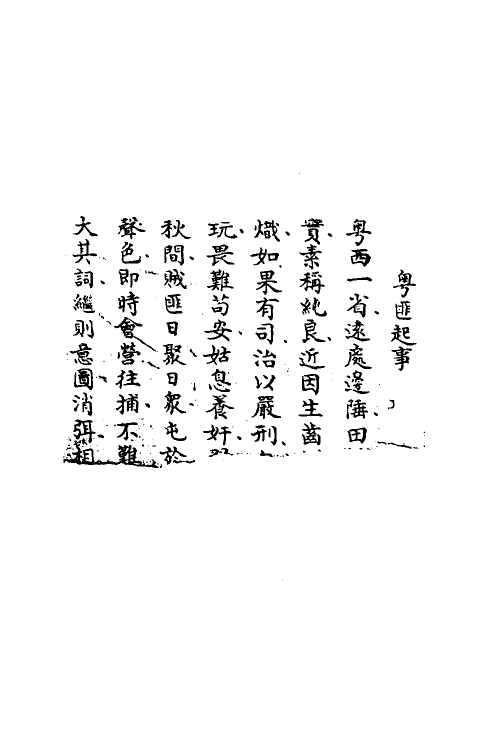 粤匪起事
粤西一省遠處邊陲田
實素稱純良近因生齒
熾如果有司治以嚴刑
玩畏難苟安姑息養奸
秋間賊匪日聚日衆屯於
聲色即時會營往捕不難
大其詞繼則意圖消弭相